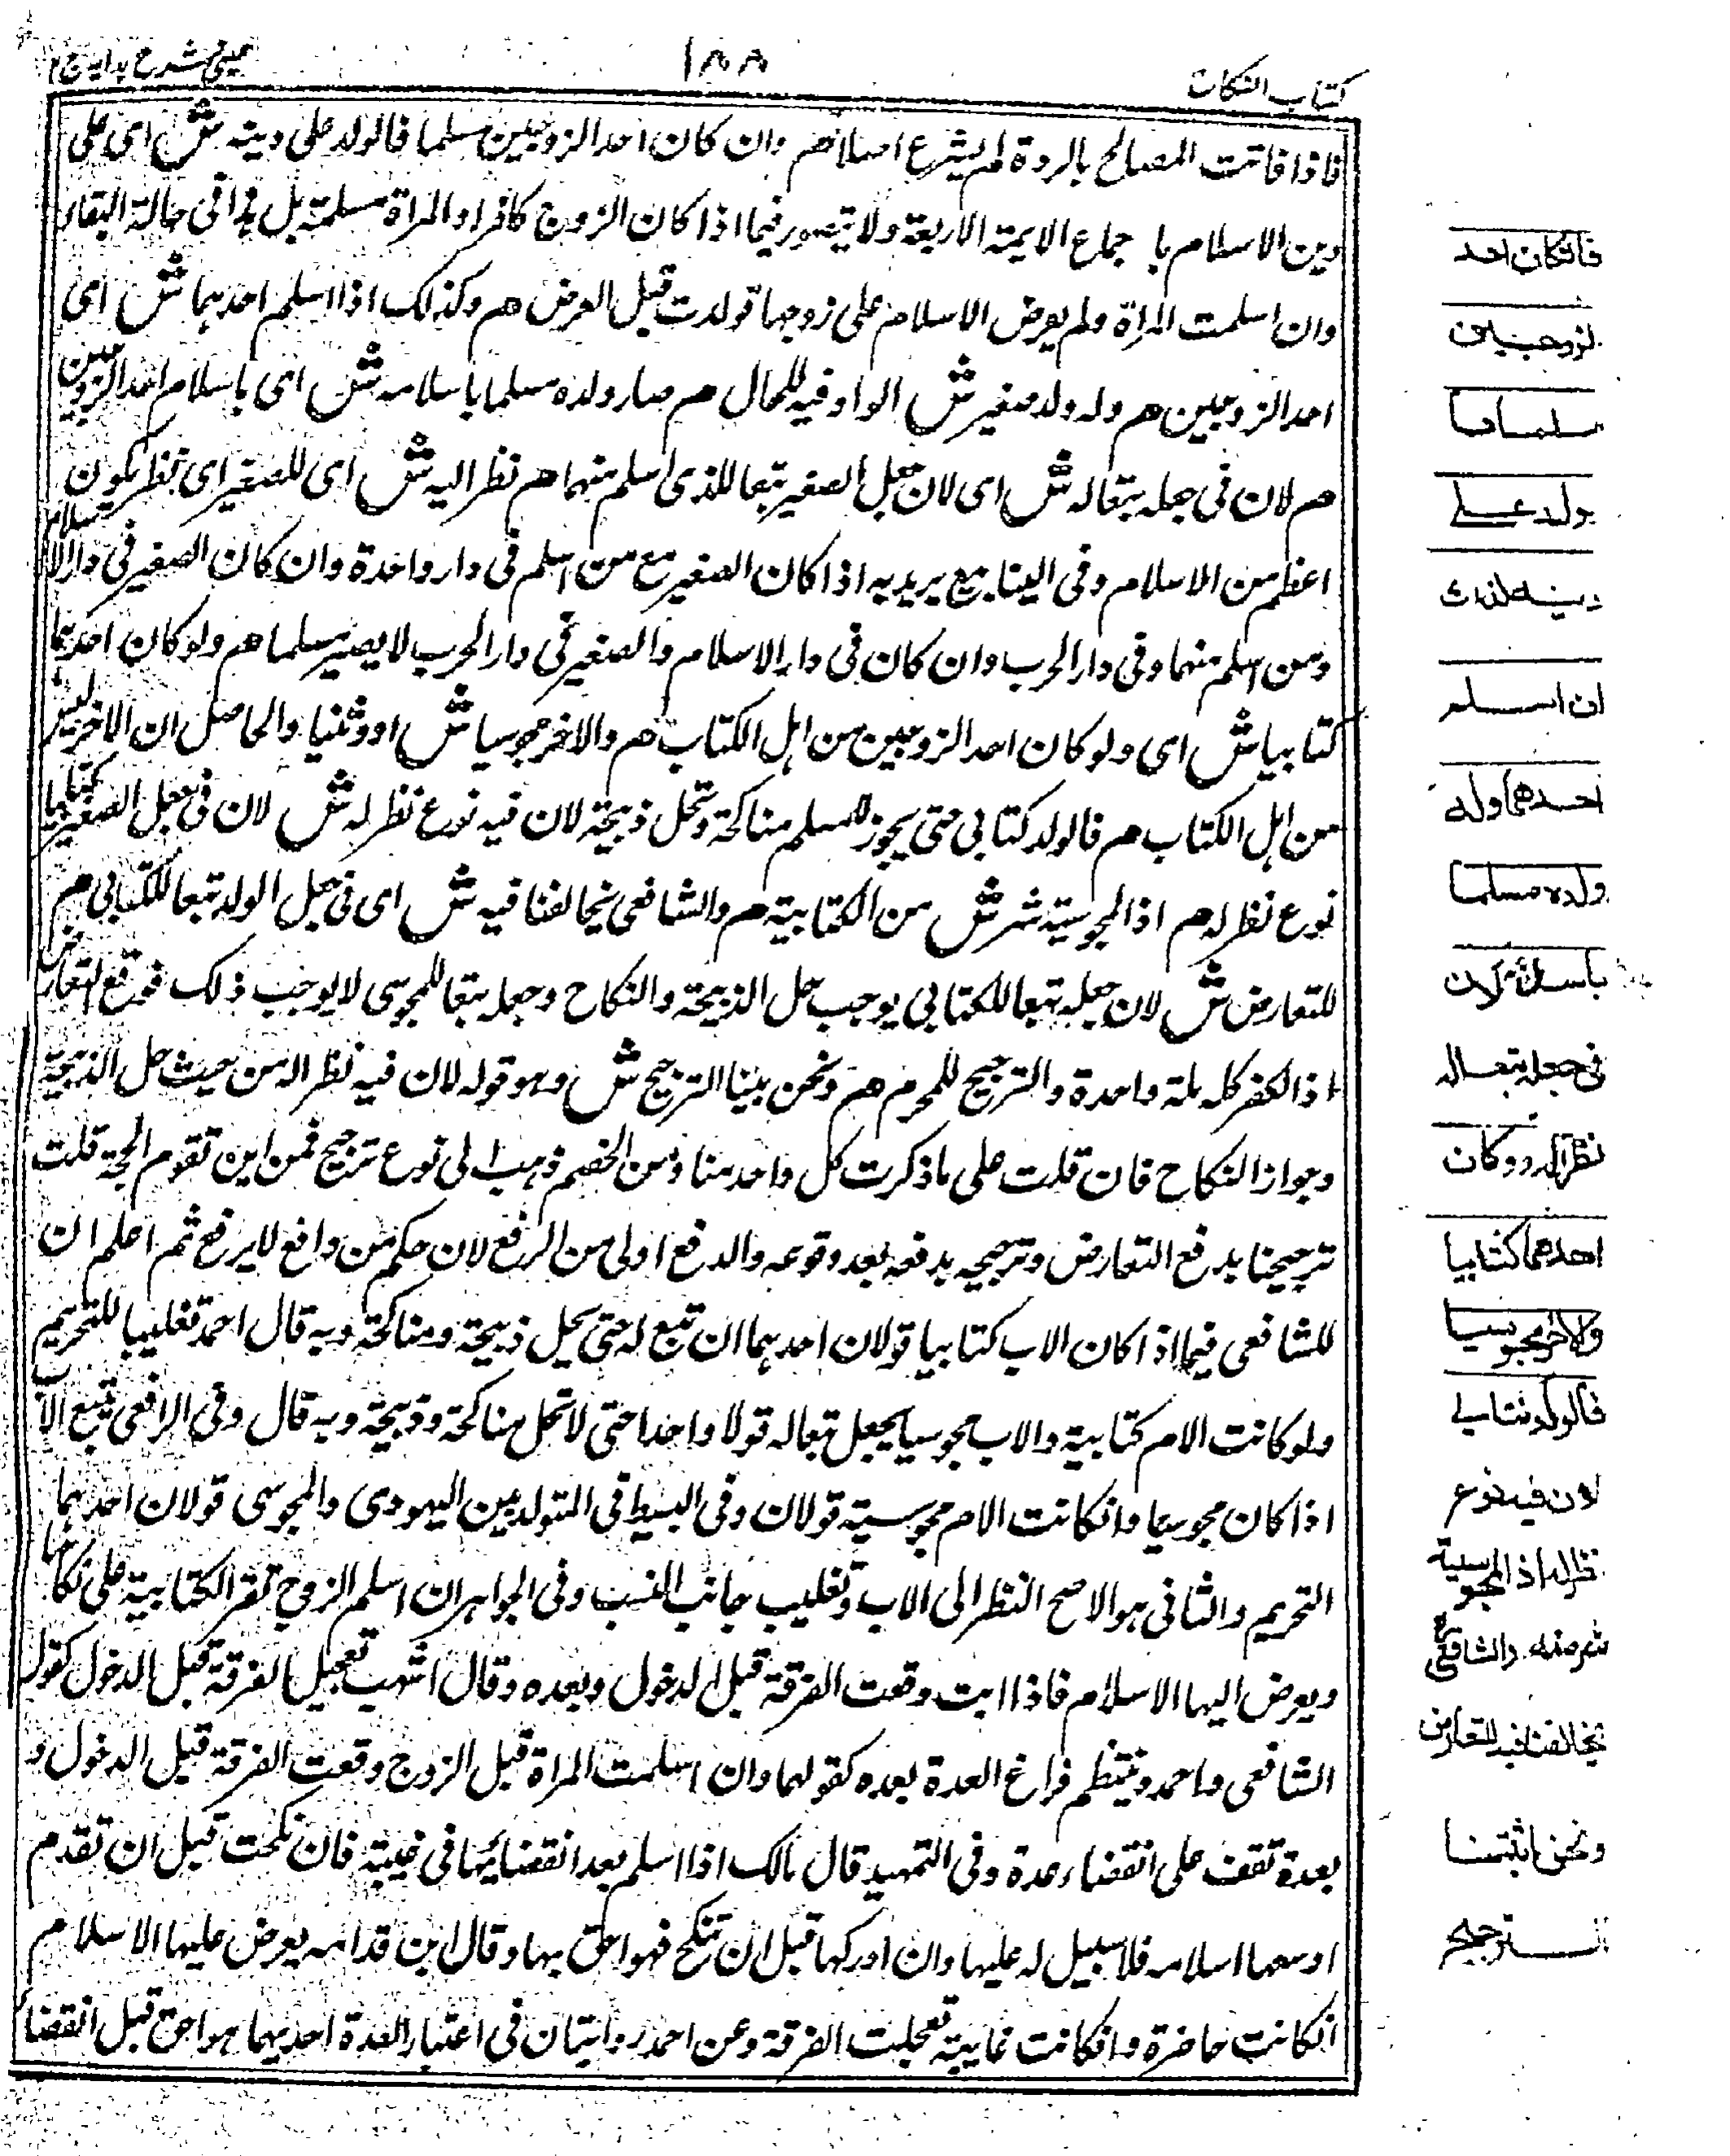 كتاب النكاح
١٨٨
عینی شرح ہدایہ ج ٢
فاذا فاتت المصالح بالردة لم يشرع اصلا هم وان كان احد الزوجين مسلما فالولد على دينه ش اى على
دين الاسلام با جماع الايمة الاربعة ولا يتصور فيما اذا كان الزوج كافرا والمراة مسلمة بل هذا فى حالة البقاء
وان اسلمت المراة ولم يعرض الاسلام على زوجها فولدت قبل العرض هم وكذلك اذا اسلم احدهما ش اى
احد الزوجين هم وله ولد صغير ش الواو فيه للحال هم صار ولده مسلما باسلامه ش اى باسلام احد الزوجين
هم لان فى جعله تبعا له ش اى لان جعل الصغير تبعا للذى اسلم منهما هم نظر اليه ش اى للصغير اى نظر يكون
اعظم من الاسلام وفى الينابيع يريد به اذا كان الصغير مع من اسلم فى دار واحدة وان كان الصغير فى دار الاسلام
ومن اسلم منهما وفى دار الحرب وان كان فى دار الاسلام والصغير فى دار الحرب لا يصير مسلما هم ولو كان احدهما
كتابيا ش اى ولو كان احد الزوجين من اهل الكتاب هم والاخر مجوسيا ش او وثنيا والحاصل ان الاخر ليس
من اهل الكتاب هم فالولد كتابى حتى يجوز للمسلم مناكحة وتحل ذبيحة لان فيه نوع نظر له ش لان فى جعل الصغير كتابيا
نوع نظر له هم اذ المجوسية شر ش من الكتابية هم والشافعى يخالفنا فيه ش اى فى جعل الولد تبعا للكتابى هم
للتعارض ش لان جعله تبعا للكتابى يوجب حل الذبيحة والنكاح وجعله تبعا للمجوسى لا يوجب ذلك فوقع التعارض
اذ الكفر كله ملة واحدة والترجيح للمحرم هم ونحن بينا الترجيح ش وهو قوله لان فيه نظر اله من حيث حل الذبيحة
وجواز النكاح فان قلت على ما ذكرت كل واحد منا ومن الخصم ذهب الى نوع ترجيح فمن اين تقوم الحجة قلت
ترجيحنا يدفع التعارض وترجيحه يدفعه بعد وقوعه والدفع اولى من الرفع لان حكم من دافع لا يرفع ثم اعلم ان
للشافعى فيما اذا كان الاب كتابيا قولان احدهما ان تبع له حتى يحل ذبيحة ومناكحة وبه قال احمد تغليبا للتحريم
ولو كانت الام كتابية والاب مجوسيا يجعل تبعا له قولا واحدا حتى لا تحل مناكحة وذبيحة وبه قال وفى الرافعى يتبع الاب
اذا كان مجوسيا وانكانت الام مجوسية قولان وفى البسيط فى المتولد بين اليهودى والمجوسى قولان احدهما
التحريم والثانى هو الاصح النظر الى الاب وتغليب جانب النسب وفى الجواهر ان اسلم الزوج تقر الكتابية على نكاحها
ويعرض اليها الاسلام فاذا ابت وقعت الفرقة قبل الدخول وبعده وقال اشهب تعجيل الفرقة قبل الدخول كقول
الشافعى واحمد وينتظر فراغ العدة بعده كقولهما وان اسلمت المراة قبل الزوج وقعت الفرقة قبل الدخول و
بعدة تقف على انقضاء عدة وفى التمهيد قال مالك اذا اسلم بعد انقضايها فى غيبته فان نكحت قبل ان تقدم
او سعها اسلامه فلا سبيل له عليها وان ادركها قبل ان تنكح فهو احق بها وقال ابن قدامه يعرض عليها الاسلام
انكانت حاضرة وانكانت غايبة تعجلت الفرقة وعن احمد روايتان فى اعتبار العدة احديهما هو احق قبل انقضاء
فانكان احد
لزوجين
سلما فا
لولد على
دينه وكذلك
ان اسلم
احدهما وله
ولده مسلما
باسلامه لان
فى جعله تبعا له
نظرا له ولو كان
احدهما كتابيا
والاخر مجوسيا
فالولد كتابى
لان فيه نوع
نظر له اذ المجوسية
شر منه والشافعى
يخالفنا فيه للتعارض
ونحن اثبتنا
الترجيح